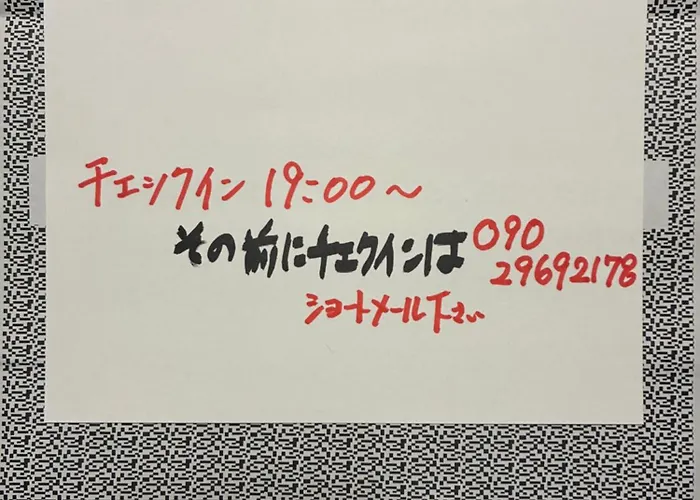 チェックイン 19:00〜
その前にチェクインは 090
29692178
ショートメール下さい